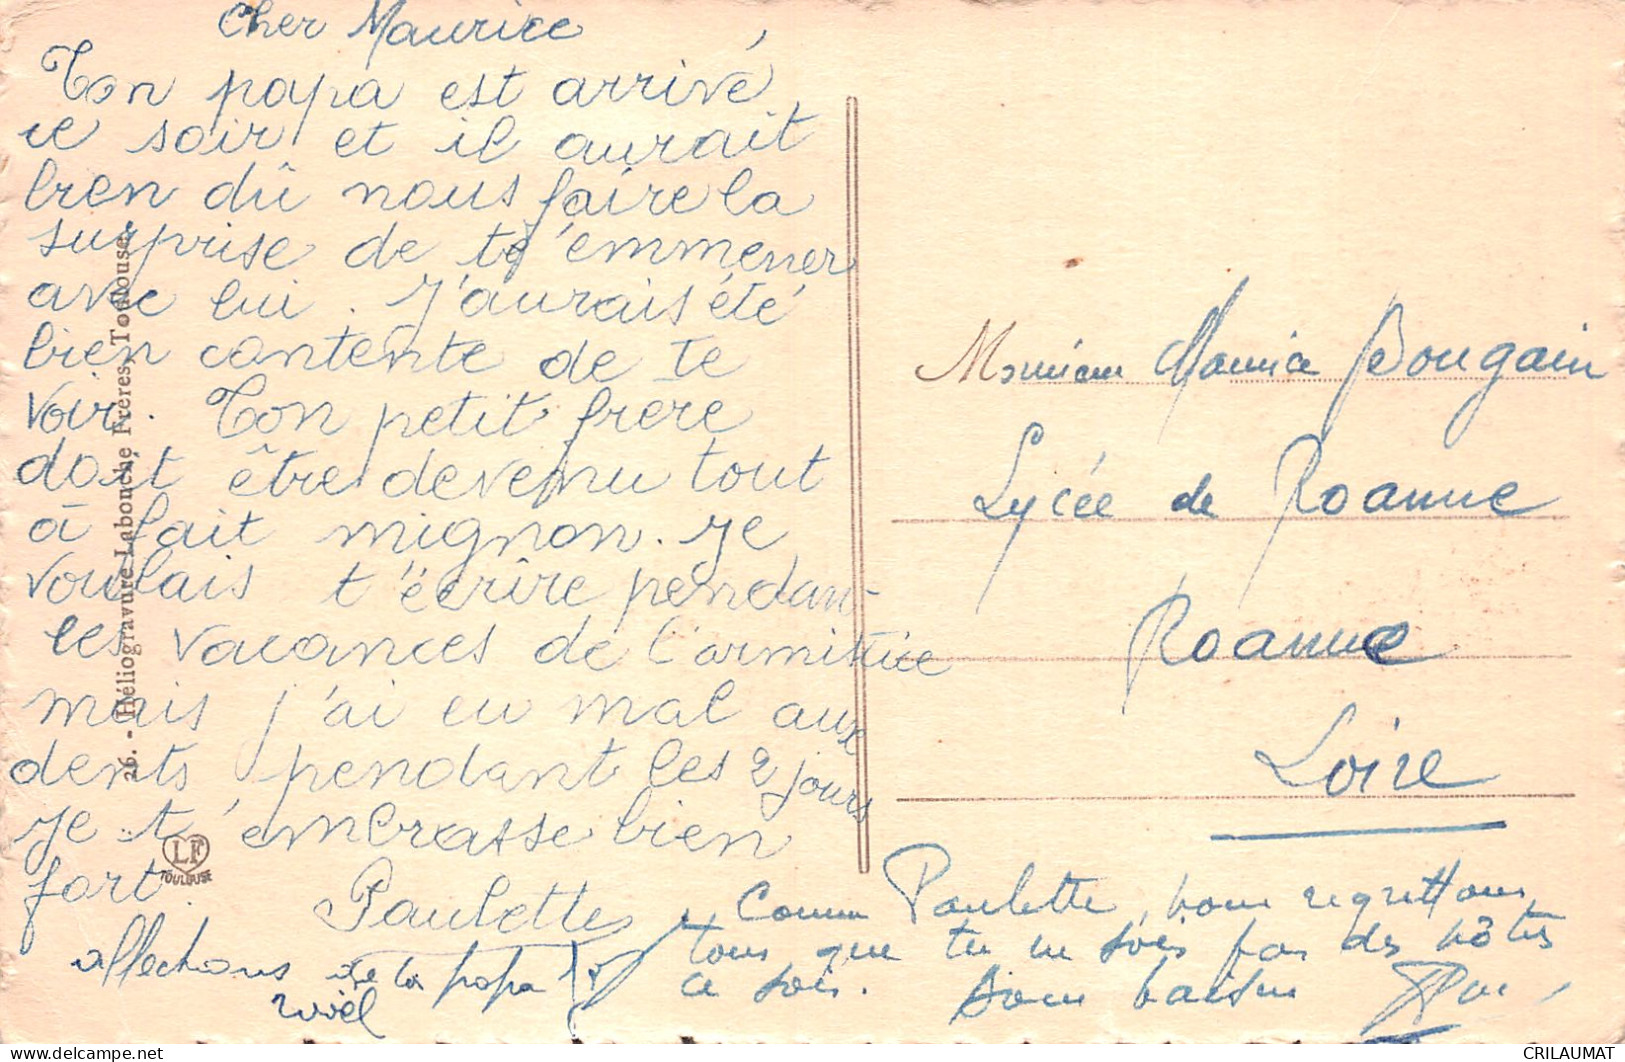 Cher Maurice
Ton papa est arrivé
ce soir et il aurait
bien dû nous faire la
surprise de t'emmener
avec lui. J'aurais été
bien contente de te
voir. Ton petit frère
doit être devenu tout
à fait mignon. Je
voulais t'écrire pendant
les vacances de l'armistice
mais j'ai eu mal aux
dents pendant les 2 jours
Je t'embrasse bien
fort.
Paulette
affections de ta papa
Comme Paulette, nous regrettons
tous que tu ne sois pas des nôtres
ce soir. Bons baisers
Monsieur Maurice Bougain
Lycée de Roanne
Roanne
Loire
26. - Héliogravure Labouche Frères, Toulouse
LF
TOULOUSE
CRILAUMAT